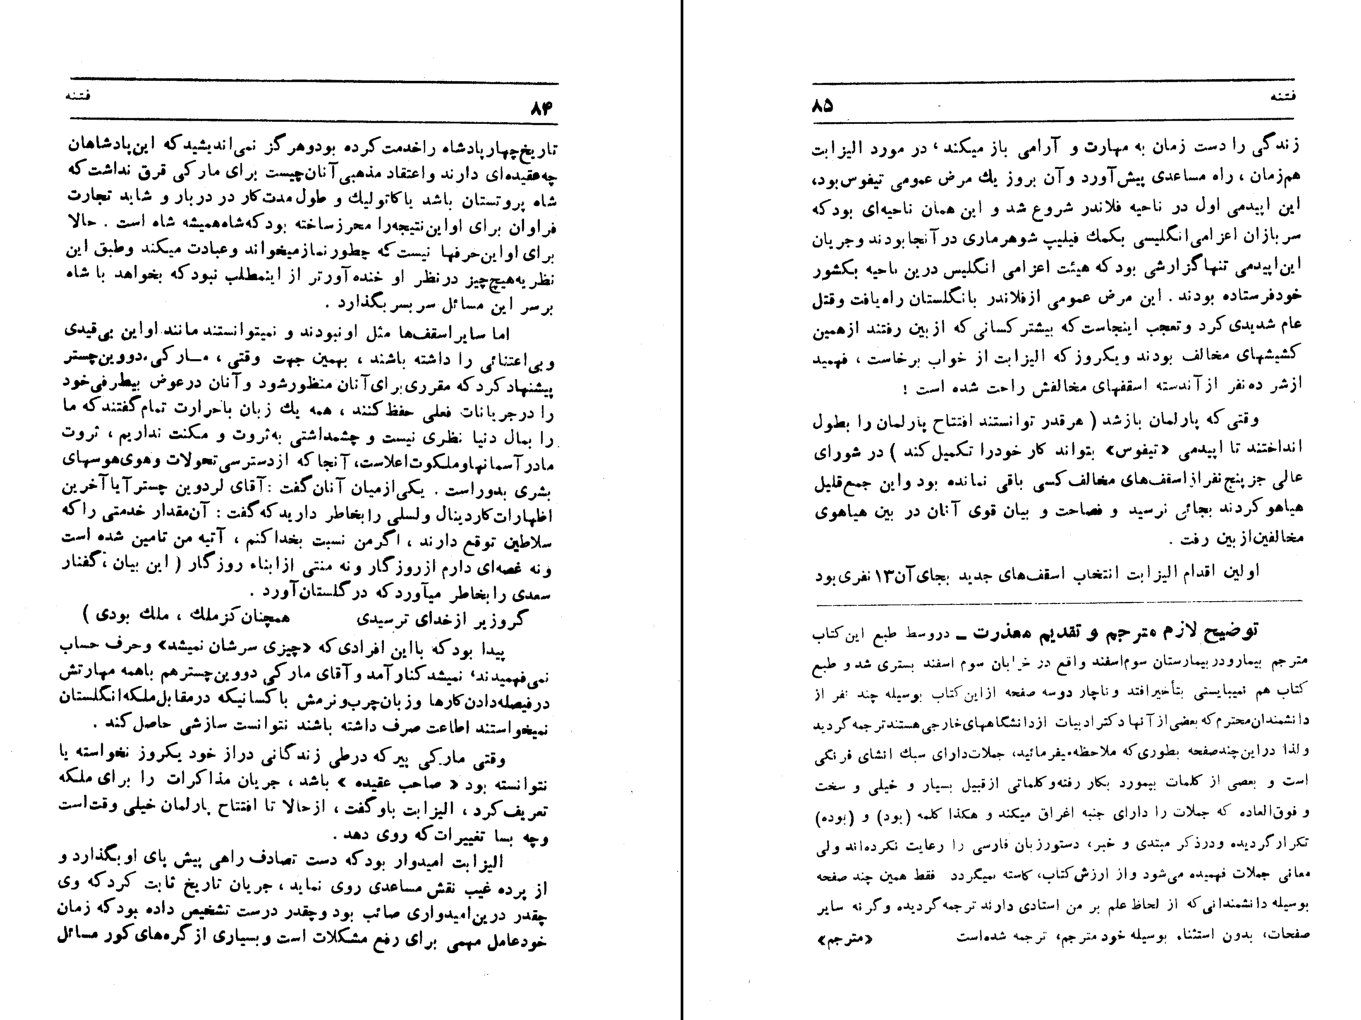 فتنه
۸۴
تاریخ چهار پادشاه را خدمت کرده بود و هرگز نمی‌اندیشید که این پادشاهان
چه عقیده‌ای دارند و اعتقاد مذهبی آنان چیست برای مارکی فرق نداشت که
شاه پروتستان باشد یا کاتولیك و طول مدت کار در دربار و شاید تجارت
فراوان برای او این نتیجه را محرز ساخته بود که شاه همیشه شاه است . حالا
برای او این حرفها نیست که چطور نماز میخواند و عبادت میکند و طبق این
نظریه هیچ چیز در نظر او خنده آورتر از اینمطلب نبود که بخواهد با شاه
بر سر این مسائل سر بسر بگذارد .
اما سایر اسقف‌ها مثل او نبودند و نمیتوانستند مانند او این بی‌قیدی
و بی‌اعتنائی را داشته باشند ، بهمین جهت وقتی ، مارکی دووین‌چستر
پیشنهاد کرد که مقرری برای آنان منظور شود و آنان در عوض بیطرفی خود
را در جریانات فعلی حفظ کنند ، همه یك زبان با حرارت تمام گفتند که ما
را بمال دنیا نظری نیست و چشمداشتی به ثروت و مکنت نداریم ، ثروت
ما در آسمانها و ملکوت اعلاست، آنجا که از دسترسی تحولات و هوی هوسهای
بشری بدور است . یکی از میان آنان گفت : آقای لردوین چستر آیا آخرین
اظهارات کاردینال ولسلی را بخاطر دارید که گفت : آن مقدار خدمتی را که
سلاطین توقع دارند ، اگر من نسبت بخدا کنم ، آتیه من تامین شده است
و نه غصه‌ای دارم از روزگار و نه منتی از ابناء روزگار ( این بیان ، گفتار
سعدی را بخاطر میآورد که در گلستان آورد .
گر وزیر از خدای ترسیدی همچنان کز ملك ، ملك بودی )
پیدا بود که با این افرادی که «چیزی سرشان نمیشد» و حرف حساب
نمی‌فهمیدند، نمیشد کنار آمد و آقای مارکی دووین چستر هم با همه مهارتش
در فیصله دادن کارها و زبان چرب و نرمش با کسانیکه در مقابل ملکه انگلستان
نمیخواستند اطاعت صرف داشته باشند نتوانست سازشی حاصل کند .
وقتی مارکی پیر که در طی زندگانی دراز خود یکروز نخواسته یا
نتوانسته بود « صاحب عقیده » باشد ، جریان مذاکرات را برای ملکه
تعریف کرد ، الیزابت باو گفت ، از حالا تا افتتاح پارلمان خیلی وقت است
و چه بسا تغییرات که روی دهد .
الیزابت امیدوار بود که دست تصادف راهی پیش پای او بگذارد و
از پرده غیب نقش مساعدی روی نماید ، جریان تاریخ ثابت کرد که وی
چقدر در این امیدواری صائب بود و چقدر درست تشخیص داده بود که زمان
خود عامل مهمی برای رفع مشکلات است و بسیاری از گره‌های کور مسائل
فتنه
۸۵
زندگی را دست زمان به مهارت و آرامی باز میکند ، در مورد الیزابت
هم زمان ، راه مساعدی پیش آورد و آن بروز یك مرض عمومی تیفوس بود،
این اپیدمی اول در ناحیه فلاندر شروع شد و این همان ناحیه‌ای بود که
سربازان اعزامی انگلیسی بکمك فیلیپ شوهر ماری در آنجا بودند و جریان
این اپیدمی تنها گزارشی بود که هیئت اعزامی انگلیس در ین ناحیه بکشور
خود فرستاده بودند . این مرض عمومی از فلاندر بانگلستان راه یافت و قتل
عام شدیدی کرد و تعجب اینجاست که بیشتر کسانی که از بین رفتند از همین
کشیشهای مخالف بودند و یکروز که الیزابت از خواب برخاست ، فهمید
از شر ده نفر از آندسته اسقفهای مخالفش راحت شده است !
وقتی که پارلمان باز شد ( هر قدر توانستند افتتاح پارلمان را بطول
انداختند تا اپیدمی «تیفوس» بتواند کار خود را تکمیل کند ) در شورای
عالی جز پنج نفر از اسقف‌های مخالف کسی باقی نمانده بود و این جمع قلیل
هیاهو کردند بجائی نرسید و فصاحت و بیان قوی آنان در بین هیاهوی
مخالفین از بین رفت .
اولین اقدام الیزابت انتخاب اسقف‌های جدید بجای آن ۱۳ نفری بود
توضیح لازم مترجم و تقدیم معذرت ـ در وسط طبع این کتاب
مترجم بیمار و در بیمارستان سوم اسفند واقع در خیابان سوم اسفند بستری شد و طبع
کتاب هم نمیبایستی بتأخیر افتد و ناچار دو سه صفحه از این کتاب بوسیله چند نفر از
دانشمندان محترم که بعضی از آنها دکتر ادبیات از دانشگاههای خارجی هستند ترجمه گردید
و لذا در این چند صفحه بطوری که ملاحظه میفرمائید، جملات دارای سبك انشای فرنگی
است و بعضی از کلمات بیمورد بکار رفته و کلماتی از قبیل بسیار و خیلی و سخت
و فوق‌العاده که جملات را دارای جنبه اغراق میکند و هکذا کلمه (بود) و (بوده)
تکرار گردیده و در ذکر مبتدی و خبر، دستور زبان فارسی را رعایت نکرده‌اند ولی
معانی جملات فهمیده می‌شود و از ارزش کتاب، کاسته نمیگردد فقط همین چند صفحه
بوسیله دانشمندانی که از لحاظ علم بر من استادی دارند ترجمه گردیده و گرنه سایر
صفحات، بدون استثناء بوسیله خود مترجم، ترجمه شده است «مترجم»